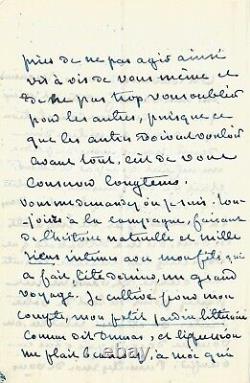 pries de ne pas agir ainsi
vis à vis de vous même et
de ne pas trop vous oublier
pour les autres, puisque ce
que les autres doivent vouloir
avant tout, c'est de vous
conserver longtems.
Vous me demandez où je suis. Tou-
jours à la campagne, faisant
de l'histoire naturelle et mille
riens intimes avec mon fils qui
a fait, l'été dernier, un grand
voyage. Je cultive pour mon
compte, mon petit jardin littéraire
comme dit Dumas, et l'expression
me plait beaucoup, à moi qui
ebay